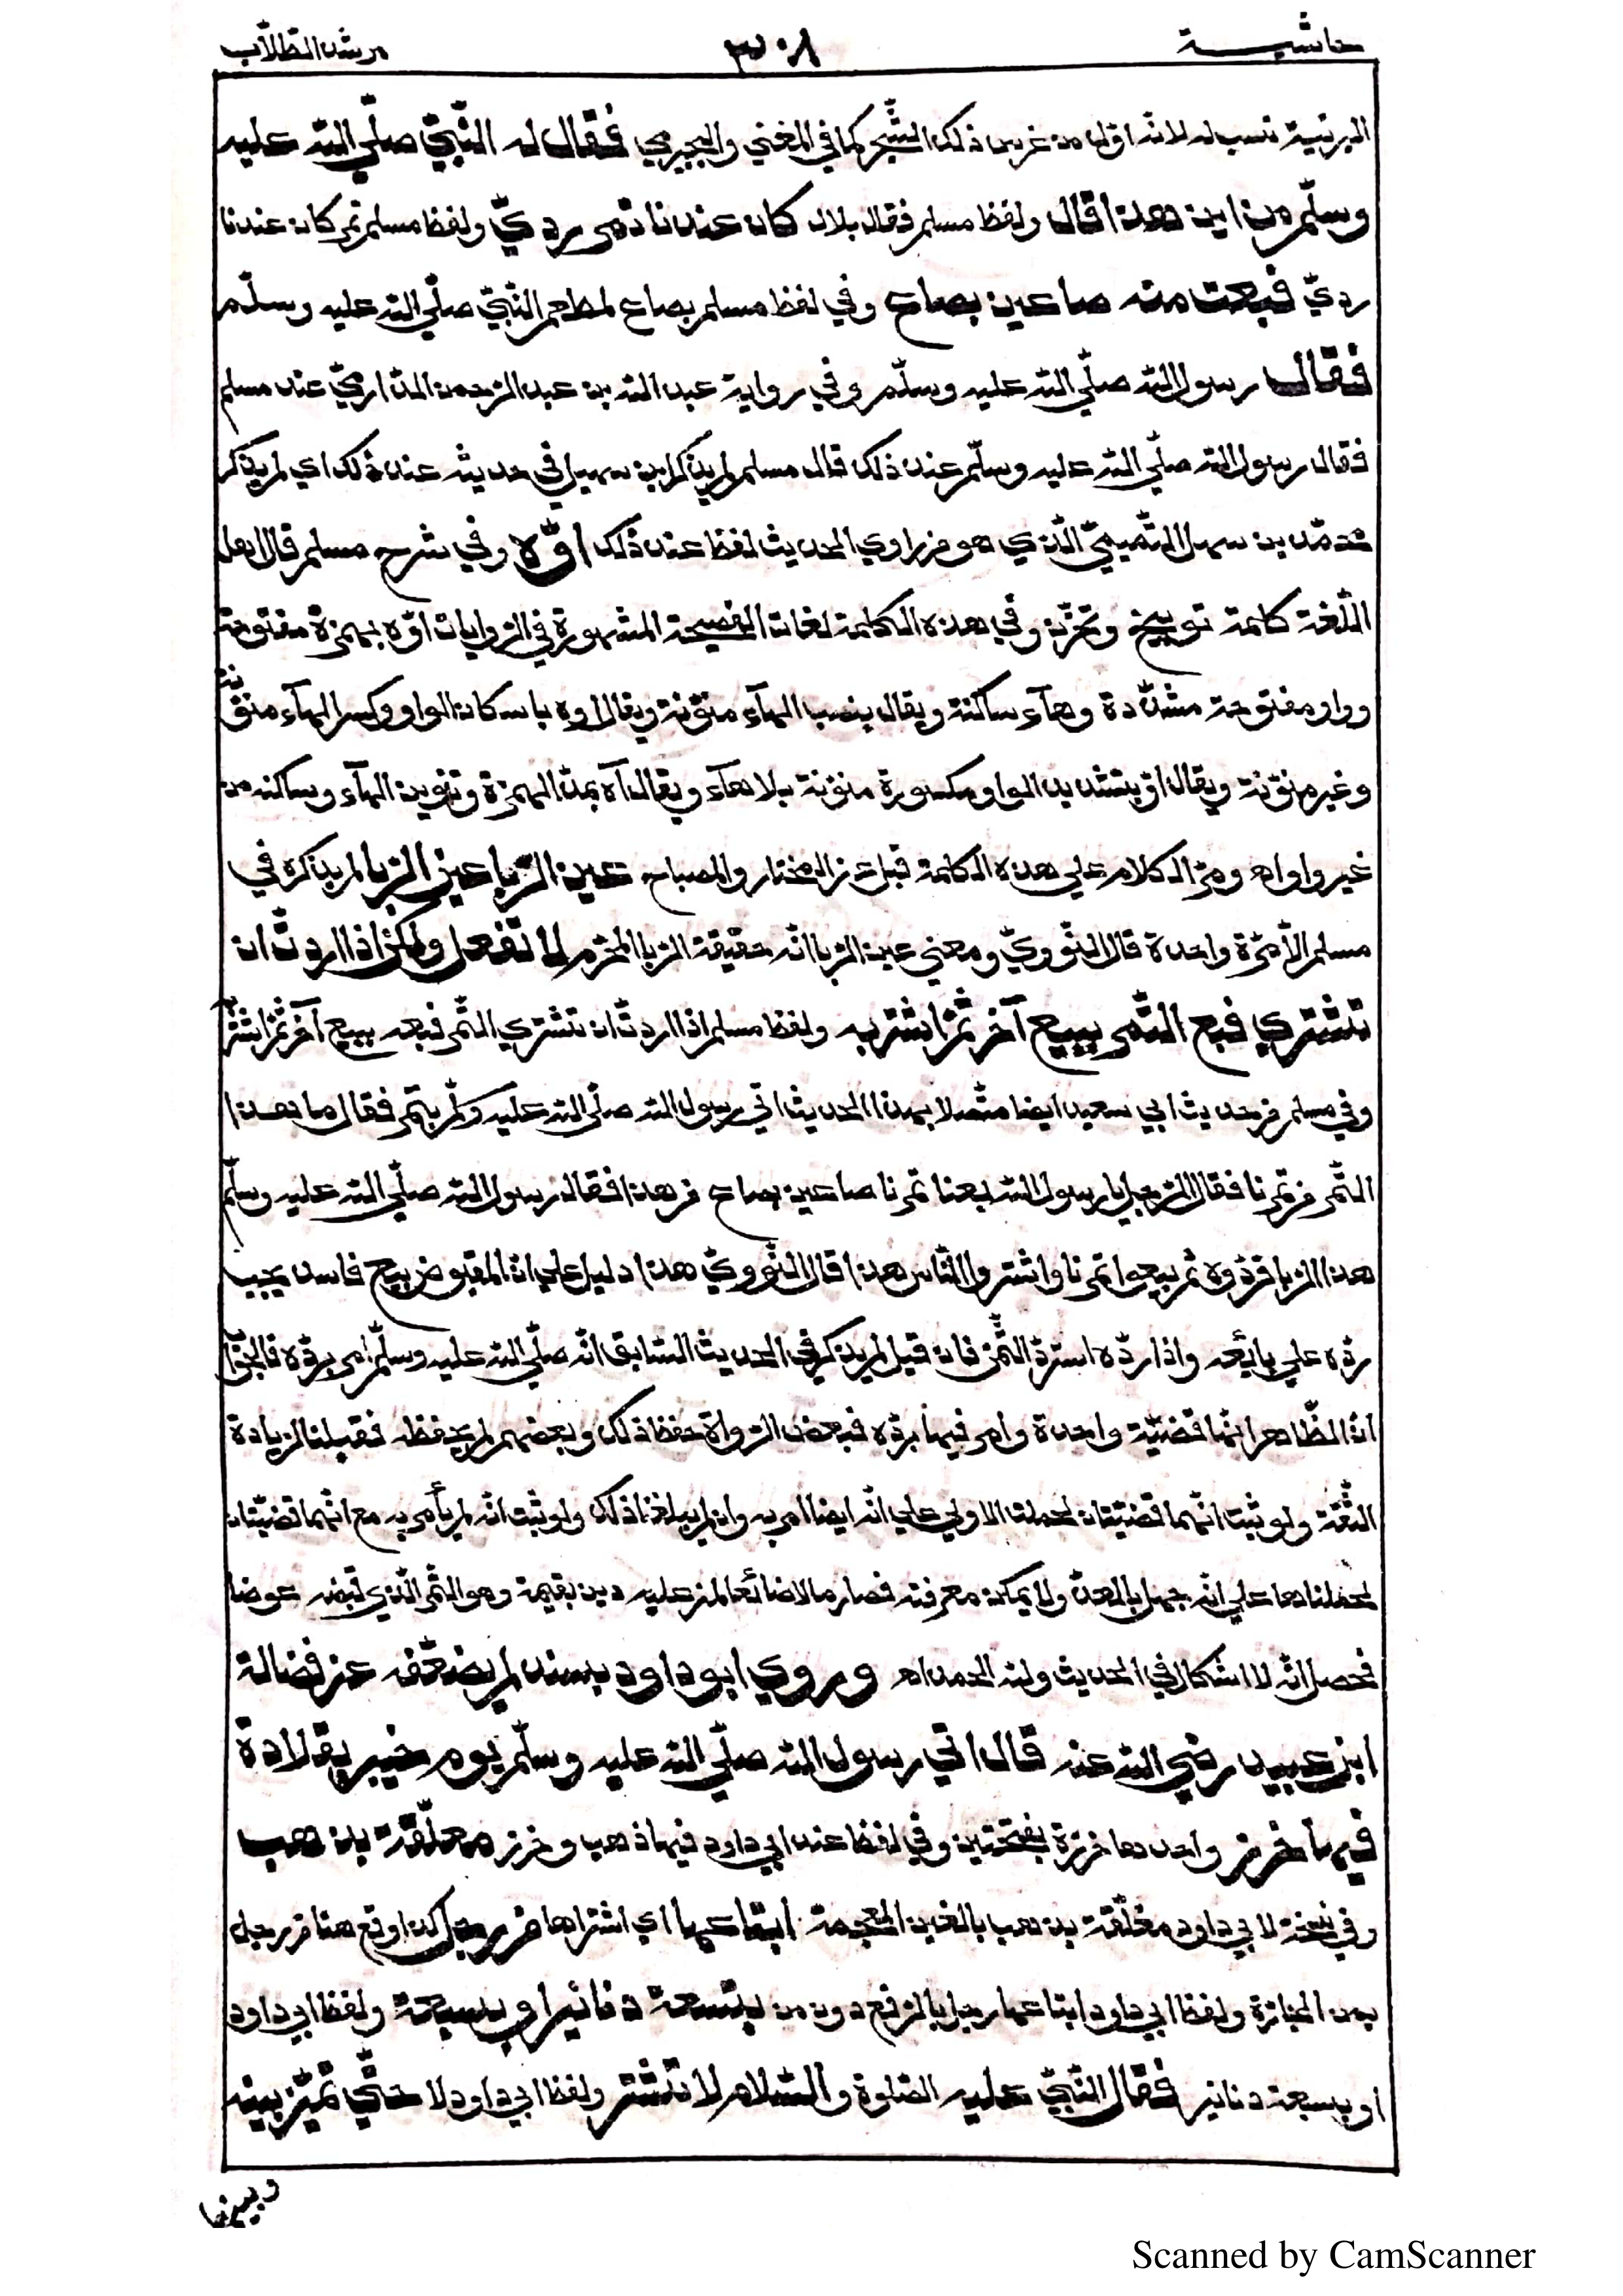 حاشيـــة ٣٠٨ مرشد الطلّاب
البرنية نسب له لانّه اوّل من غرس ذلك الشّجر كما في المغني والبجيرمي فقال له النّبيّ صلّي اللّه عليه
وسلّم من اين هذا قال ولفظ مسلم فقال بلال كان عندنا تمر رديّ ولفظ مسلم تمر كان عندنا
رديّ فبعت منه صاعين بصاع وفي لفظ مسلم بصاع لمطعم النّبيّ صلّي اللّه عليه وسلّم
فقال رسول اللّه صلّي اللّه عليه وسلّم وفي رواية عبد اللّه بن عبد الرّحمن الدّارميّ عند مسلم
فقال رسول اللّه صلّي اللّه عليه وسلّم عند ذلك قال مسلم لم يذكر ابن سهيل في حديثه عند ذلك اي لم يذكر
محمّد بن سهل التّميميّ الّذي هو من راوي الحديث لفظ عند ذلك اوّه وفي شرح مسلم قال اهل
اللّغة كلمة توبيخ وتحزّن وفي هذه الكلمة لغات الفصيحة المشهورة في الرّوايات اوّه بهمزة مفتوحة
وواو مفتوحة مشدّدة وهآء ساكنة ويقال بنصب الهآء منوّنة ويقال اوه باسكان الواو وكسر الهآء منوّنة
وغير منوّنة ويقال اوّ بتشديد الواو مكسورة منوّنة بلا هآء ويقال آه بمدّ الهمزة وتنوين الهآء وساكنه من
غير واو اهـ ومرّ الكلام علي هذه الكلمة قبل عن المختار والمصباح عين الرّبا عين الرّبا لم يذكره في
مسلم الّا مرّة واحدة قال النّوويّ ومعني عين الرّبا انّه حقيقة الرّبا المحرّم لا تفعل ولكن اذا اردتّ ان
تشتري فبع التّمر ببيع آخر ثمّ اشتر به ولفظ مسلم اذا اردتّ ان تشتري التّمر فبعه ببيع آخر ثمّ اشتر به
وفي مسلم من حديث ابي سعيد ايضا متّصلا بهذا الحديث اتي رسول اللّه صلّي اللّه عليه وسلّم بتمر فقال ما هذا
التّمر من تمرنا فقال الرّجل يا رسول اللّه بعنا تمرنا صاعين بصاع من هذا فقال رسول اللّه صلّي اللّه عليه وسلّم
هذا الرّبا فردّوه ثم بيعوا تمرنا واشتروا لنا من هذا قال النّوويّ هذا دليل علي انّ المقبوض ببيع فاسد يجب
ردّه علي بائعه واذا ردّه استردّ الثّمن فان قيل لم يذكر في الحديث السّابق انّه صلّي اللّه عليه وسلّم امر بردّه فالجواب
انّ الظّاهر انّها قضيّة واحدة وامر فيها بردّه فبعض الرّواة حفظ ذلك وبعضهم لم يحفظه فقبلنا زيادة
الثّقة ولو ثبت انّهما قضيّتان لحملت الاولي علي انّه ايضا امر به وان لم يبلغنا ذلك ولو ثبت انّه لم يأمر به مع انّهما قضيّتان
لحملناها علي انّه جهل بائعه ولا يمكن معرفته فصار مالا ضائعا لمن عليه دين بقيمة وهو التّمر الّذي قبضه عوضا
فحصل انّه لا اشكال في الحديث وللّه الحمد اهـ وروي ابو داود بسند لم يضعّفه عن فضالة
ابن عبيد رضي اللّه عنه قال اتي رسول اللّه صلّي اللّه عليه وسلّم يوم خيبر بقلادة
فيها خرز واحدها خرزة بفتحتين وفي لفظ عند ابي داود فيها ذهب وخرز معلّقة بذهب
وفي نسخة لابي داود مغلّقة بذهب بالغين المعجمة ابتاعها اي اشتراها من رجل كذا وقع هنا من رجل
بمن الجارّة ولفظ ابي داود ابتاعها رجل بالرّفع دون من بتسعة دنانير او بسبعة ولفظ ابي داود
او بسبعة دنانير فقال النّبيّ عليه الصّلوة والسّلام لا تشتر ولفظ ابي داود لا حتّي تميّز بينه
وبينها
Scanned by CamScanner